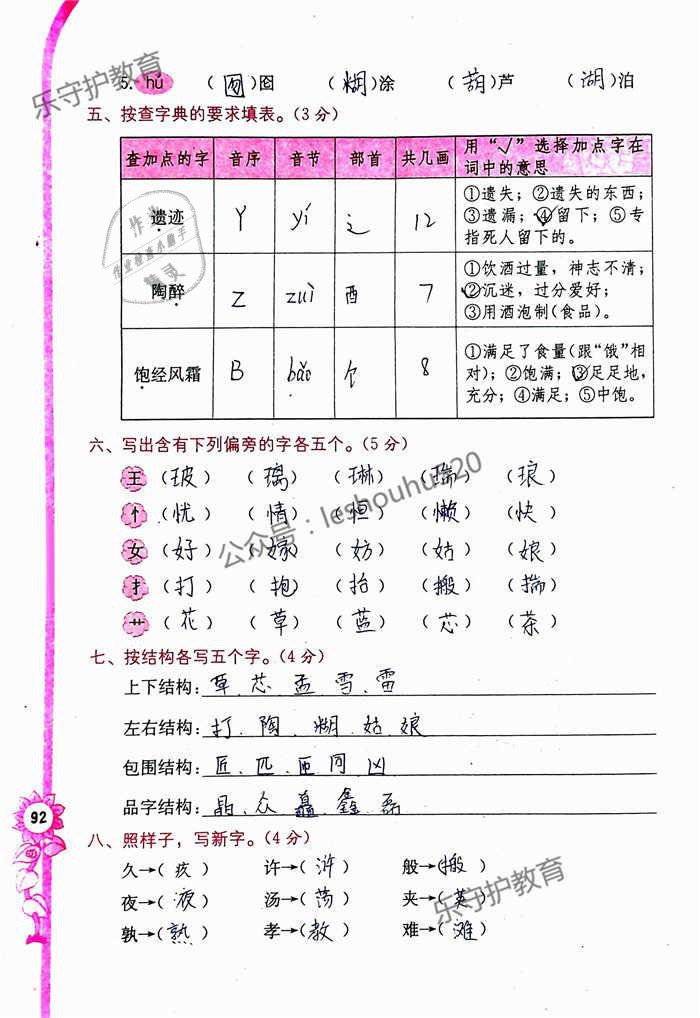 5. hú （囫）囵 （糊）涂 （葫）芦 （湖）泊
五、按查字典的要求填表。(3分)
查加点的字 音序 音节 部首 共几画 用“√”选择加点字在词中的意思
遗迹 Y yí 辶 12 ①遗失；②遗失的东西；③遗漏；④留下；⑤专指死人留下的。
陶醉 Z zuì 酉 7 ①饮酒过量，神志不清；②沉迷，过分爱好；③用酒泡制(食品)。
饱经风霜 B bǎo 饣 8 ①满足了食量(跟“饿”相对)；②饱满；③足足地，充分；④满足；⑤中饱。
六、写出含有下列偏旁的字各五个。(5分)
王（玻）（璃）（琳）（瑞）（琅）
忄（忧）（情）（恒）（懒）（快）
女（好）（嫁）（妨）（姑）（娘）
扌（打）（抱）（抬）（搬）（揣）
艹（花）（草）（蓝）（芯）（茶）
七、按结构各写五个字。(4分)
上下结构：草、芯、孟、雪、雷
左右结构：打、陶、糊、姑、娘
包围结构：匠、匹、匣、同、凶
品字结构：晶、众、矗、鑫、磊
八、照样子，写新字。(4分)
久→(疚) 许→(浒) 般→(搬)
夜→(液) 汤→(荡) 夹→(英)
孰→(熟) 孝→(教) 难→(滩)
92
乐守护教育
作业
作业检查小助手
精灵
公众号：leshouhu520
乐守护教育